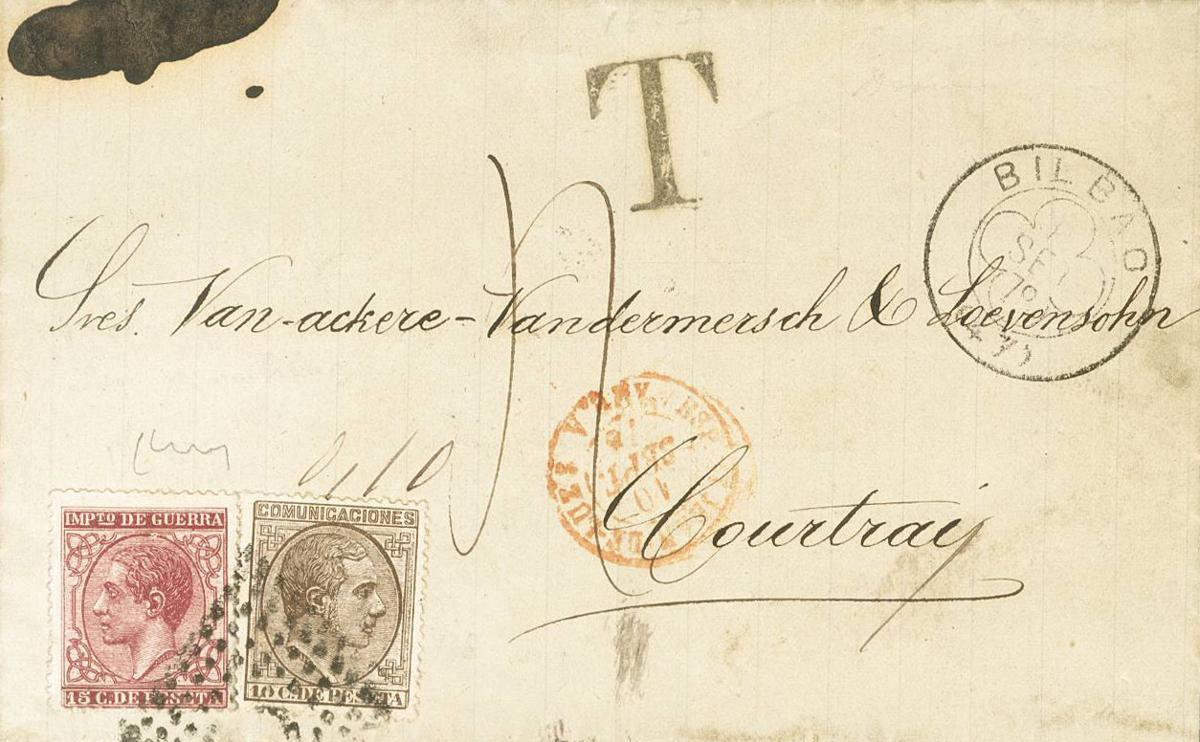 T
BILBAO
SE
Sres. Van-ackere-Vandermersch & Loevensohn
10
SEPT.
Courtrai
IMPTO DE GUERRA
15 C. DE PESETA
COMUNICACIONES
10 C. DE PESETA